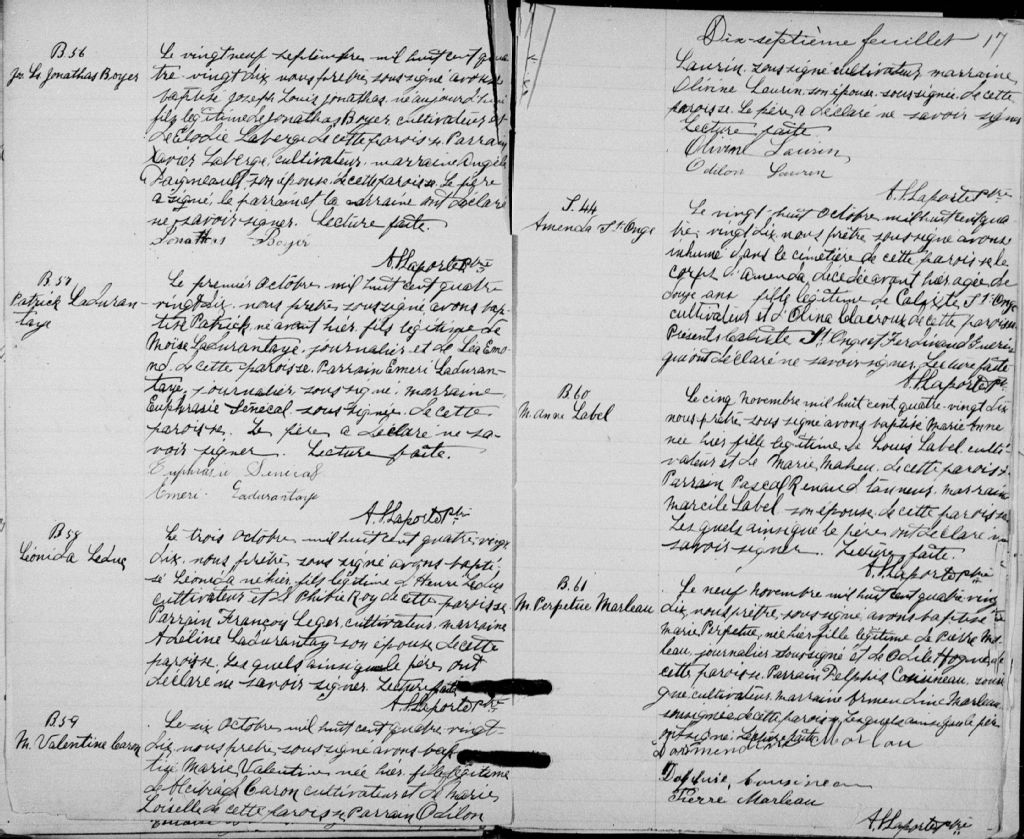 B 56
Jos Ls Jonathas Boyer
Le vingt neuf septembre mil huit cent qua
tre-vingt dix nous prêtre soussigné avons
baptisé Joseph Louis Jonathas né aujourd'hui
fils légitime de Jonathas Boyer cultivateur et
de Elodie Laberge de cette paroisse. Parrain
Xavier Laberge, cultivateur, marraine Angèle
Daigneault son épouse de cette paroisse. Le père
a signé, le parrain et la marraine ont déclaré
ne savoir signer. Lecture faite.
Jonathas Boyer
A. Laporte Ptre
B 57
Patrick Laduran-
taye
Le premier Octobre mil huit cent quatre
vingt dix nous prêtre soussigné avons bap-
tisé Patrick, né avant hier, fils légitime de
Moïse Ladurantaye journalier et de Léa Emo-
nd, de cette paroisse. Parrain Emeri Laduran-
taye, journalier, soussigné, marraine
Euphrasie Sénécal soussignée de cette
paroisse. Le père a déclaré ne sa-
voir signer. Lecture faite.
Euphrasie Senécal
Emeri Ladurantaye
A. Laporte Ptre
B 58
Léonida Leduc
Le trois Octobre, mil huit cent quatre-vingt
dix, nous prêtre soussigné avons bapti-
sé Léonida né hier, fils légitime d'Henri Leduc
cultivateur et d' Roy de cette paroisse
Parrain François Leger, cultivateur, marraine
Adeline Ladurantay son épouse de cette
paroisse. Lesquels ainsi que le père, ont
déclaré ne savoir signer. Lecture faite
A. Laporte Ptre
B 59
M. Valentine Caron
Le six Octobre mil huit cent quatre-vingt-
dix, nous prêtre soussigné avons bap
tisé Marie Valentine née hier, fille légitime
de Caron cultivateur et de Marie
Loiselle de cette paroisse Parrain Odilon
Dix-septième feuillet 17
Laurin, soussigné cultivateur, marraine
Olivine Laurin son épouse soussignée, de cette
paroisse. Le père a déclaré ne savoir signer
Lecture faite
Olivine Laurin
Odilon Laurin
A. Laporte Ptre
S. 44
Amenda St Onge
Le vingt-huit Octobre, mil huit cent qua
tre, vingt dix, nous prêtre soussigné avons
inhumé dans le cimetière de cette paroisse le
corps d'Amenda, décédée avant hier agée de
douze ans fille légitime de Calyxte St Onge
cultivateur et d'Olina Lacroix de cette paroisse
Présents Calixte St Onge et Ferdinand Guérin
qui ont déclaré ne savoir signer. Lecture faite
A. Laporte Ptre
B. 60
M. Anne Label
Le cinq Novembre mil huit cent quatre-vingt dix
nous prêtre, soussigné avons baptisé Marie Anne
née hier fille légitime de Louis Label culti-
vateur et de Marie Maheu de cette paroisse
Parrain Pascal Renaud tanneur, marraine
Marcile Label son épouse de cette paroisse
Lesquels ainsi que le père, ont déclaré ne
savoir signer. Lecture faite.
A. Laporte Ptre
B. 61
M. Perpetue Marleau
Le neuf Novembre mil huit cent quatre vingt
dix, nous prêtre, soussigné, avons baptisé
Marie Perpetue, née hier fille légitime de Pierre Mar
leau, journalier soussigné et de Odile Hogue, de
cette paroisse, Parrain Delphis Cousineau, sous
igné, cultivateur, marraine Line Marleau
soussignée de cette paroisse, Lesquels ainsi que le père
ont signé. Lecture faite
Marlau
Cousineau
Pierre Marleau
A. Laporte Ptre